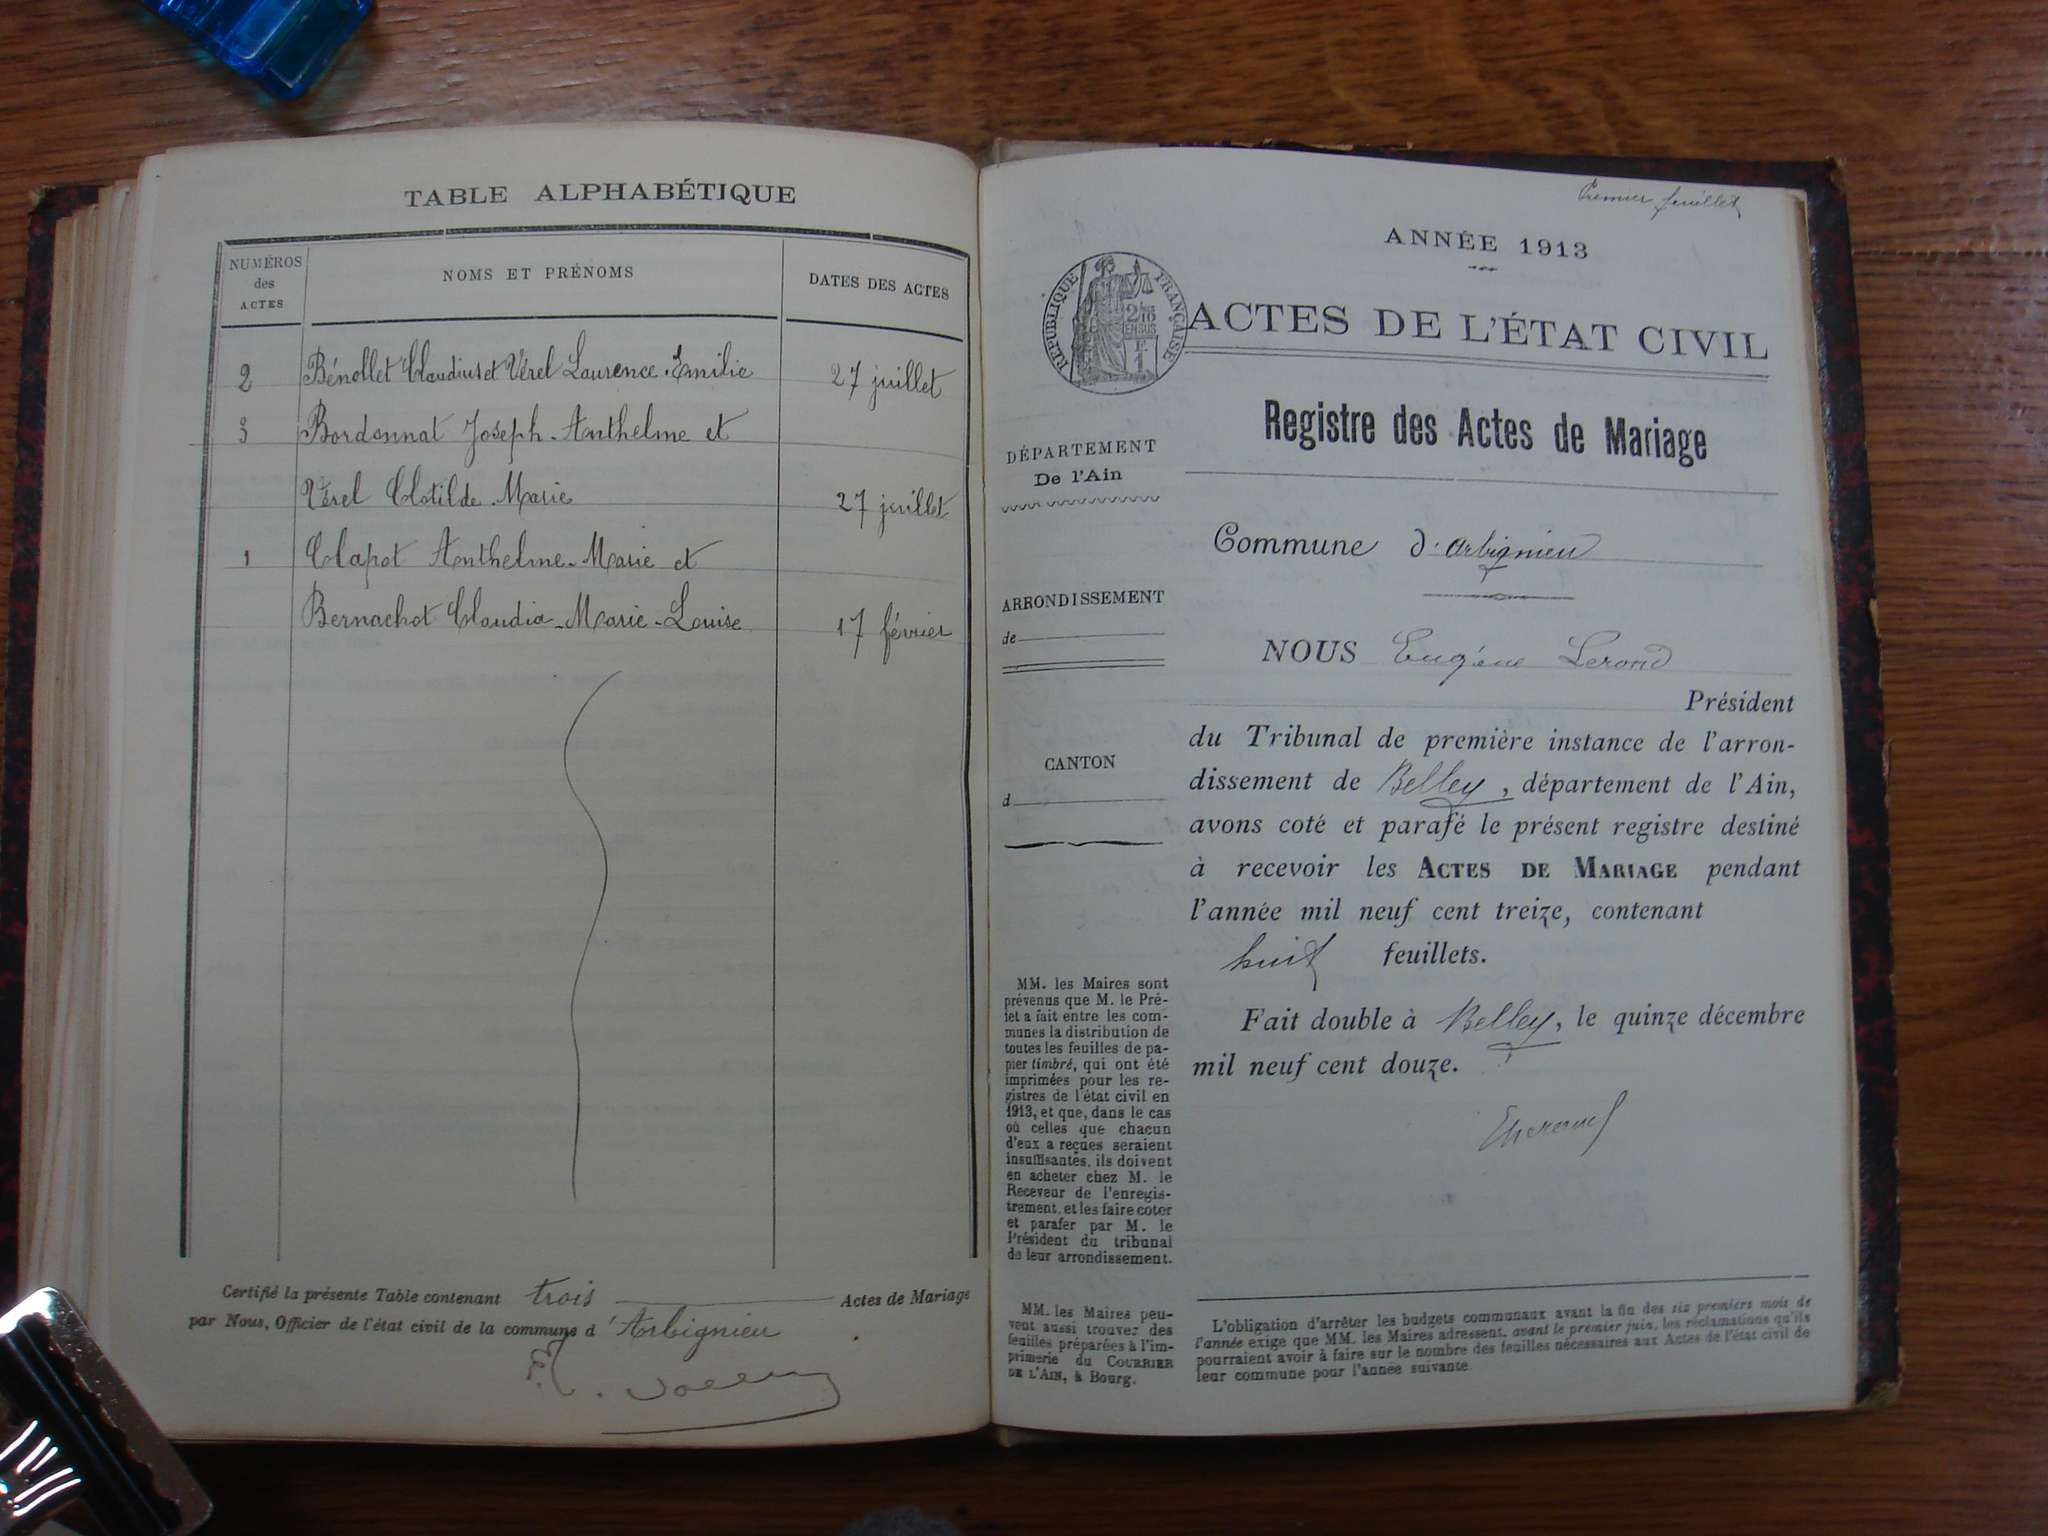 TABLE ALPHABÉTIQUE
NUMÉROS des ACTES
NOMS ET PRÉNOMS
DATES DES ACTES
2 Bénollet Claudius et Vérel Laurence-Emilie 27 juillet
3 Bordonnat Joseph-Anthelme et
Vérel Clotilde-Marie 27 juillet
1 Clapot Anthelme-Marie et
Bernachot Claudia-Marie-Louise 17 février
Certifié la présente Table contenant trois Actes de Mariage
par Nous, Officier de l'état civil de la commune d'Arbignieu
Premier feuillet
ANNÉE 1913
RÉPUBLIQUE FRANÇAISE
2/10 EN SUS
F. 1
ACTES DE L'ÉTAT CIVIL
Registre des Actes de Mariage
DÉPARTEMENT
De l'Ain
Commune d'Arbignieu
ARRONDISSEMENT
de
CANTON
d
NOUS Eugène Lerond
Président
du Tribunal de première instance de l'arron-
dissement de Belley, département de l'Ain,
avons coté et parafé le présent registre destiné
à recevoir les ACTES DE MARIAGE pendant
l'année mil neuf cent treize, contenant
huit feuillets.
Fait double à Belley, le quinze décembre
mil neuf cent douze.
MM. les Maires sont
prévenus que M. le Pré-
fet a fait entre les com-
munes la distribution de
toutes les feuilles de pa-
pier timbré, qui ont été
imprimées pour les re-
gistres de l'état civil en
1913, et que, dans le cas
où celles que chacun
d'eux a reçues seraient
insuffisantes, ils doivent
en acheter chez M. le
Receveur de l'enregis-
trement, et les faire coter
et parafer par M. le
Président du tribunal
de leur arrondissement.
MM. les Maires peu-
vent aussi trouver des
feuilles préparées à l'im-
primerie du COURRIER
DE L'AIN, à Bourg.
L'obligation d'arrêter les budgets communaux avant la fin des six premiers mois de
l'année exige que MM. les Maires adressent, avant le premier juin, les réclamations qu'ils
pourraient avoir à faire sur le nombre des feuilles nécessaires aux Actes de l'état civil de
leur commune pour l'année suivante